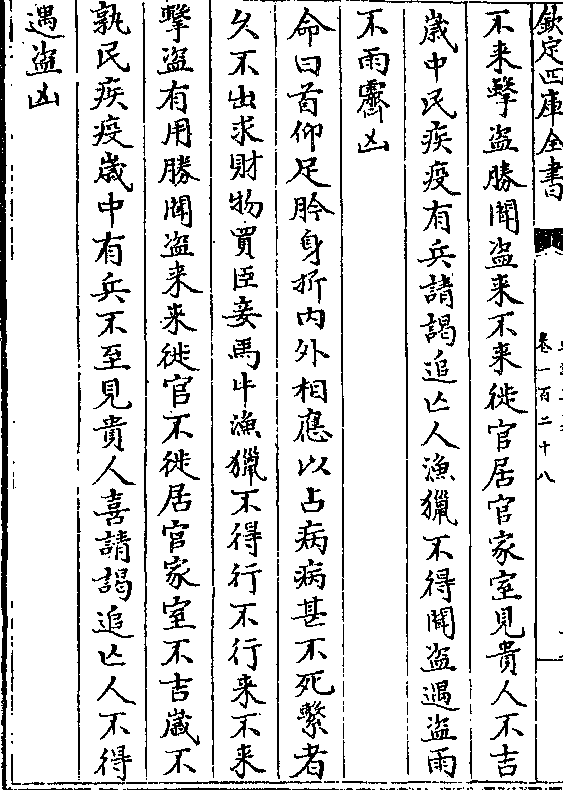 欽定四庫全書
卷一百二十八
不来擊盗勝聞盗来不来徙官居官家室見貴人不吉
歲中民疾疫有兵請謁追亡人漁獵不得聞盗遇盗雨
不雨霽凶
命曰首仰足肣身折内外相應以占病病甚不死繫者
久不出求財物買臣妾馬牛漁獵不得行不行来不来
擊盗有用勝聞盗来来徙官不徙居官家室不吉歲不
孰民疾疫歲中有兵不至見貴人喜請謁追亡人不得
遇盗凶